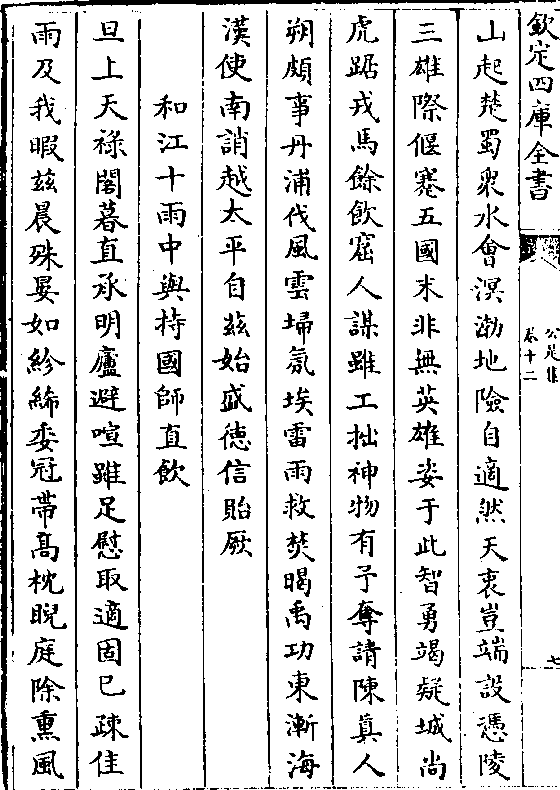 欽定四庫全書
公是集
卷十二
七
山起楚蜀衆水會溟渤地險自適然天衷豈端設憑陵
三雄際偃蹇五國末非無英雄姿于此智勇竭疑城尚
虎踞戎馬餘飲窟人謀雖工拙神物有予奪請陳真人
朔頗事丹浦伐風雲埽氛埃雷雨救焚暍禹功東漸海
漢使南誚越太平自兹始盛德信貽厥
和江十雨中與持國師直飲
旦上天禄閣暮直承明廬避喧雖足慰取適固已疎佳
雨及我暇兹晨殊晏如紾絺委冠帶髙枕睨庭除熏風